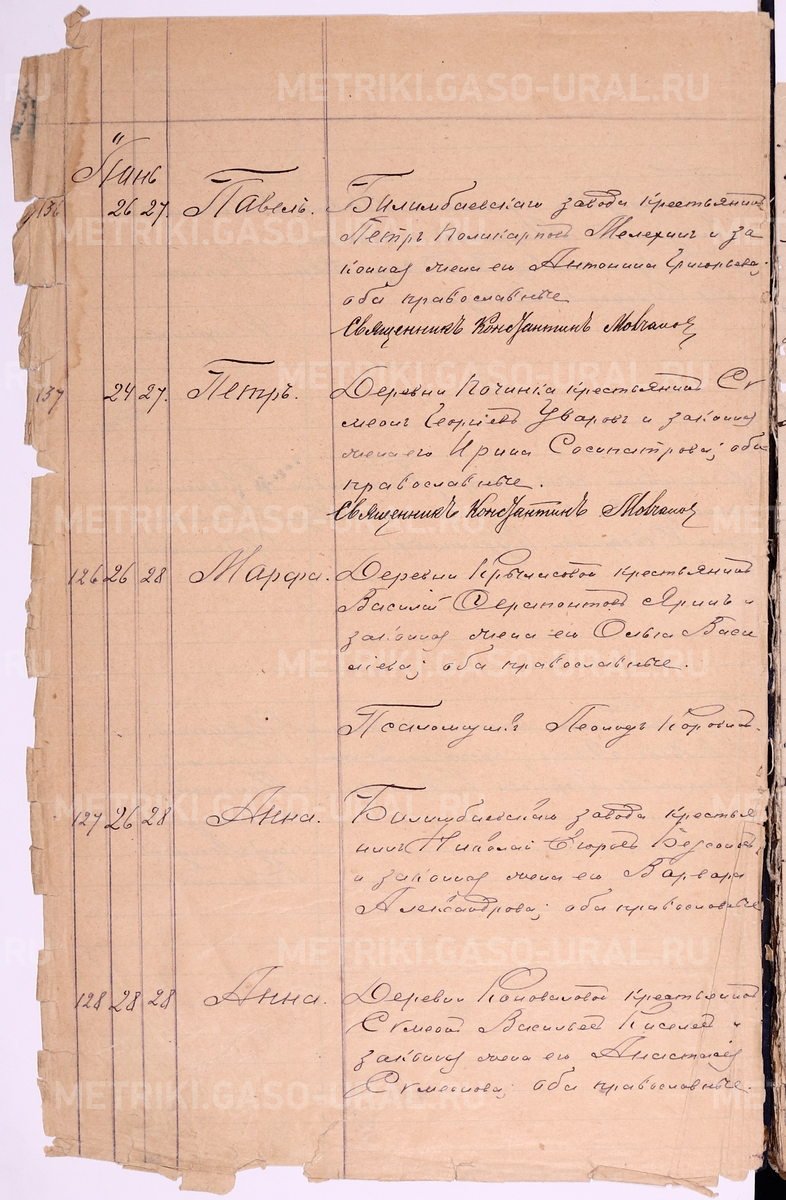 Iюнь
136 26 27. Павелъ. Билимбаевскаго завода крестьянинъ
Петръ Поликарповъ Мелехинъ и за
конная жена его Антонина Григорьева;
оба православные
Священникъ Константинъ Мовчанов
137 24 27. Петръ. Деревни Починка крестьянинъ Си
меонъ Георгіевъ Уваровъ и законная
жена его Ирина Сосипатрова; оба
православные.
Священникъ Константинъ Мовчанов
126 26 28 Марфа. Деревни Крыласовой крестьянинъ
Василій Ферапонтовъ Яринъ и
законная жена его Ольга Васи
ліева; оба православные.
Псаломщикъ Леонидъ Коровинъ.
127 26 28 Анна. Билимбаевскаго завода крестья
нинъ Николай Егоровъ
и законная жена его Варвара
Александрова; оба православные
128 28 28 Анна. Деревни Коноваловой крестьянинъ
Симеонъ Васильевъ Киселевъ и
законная жена его Анастасія
Симеонова; оба православные.
METRIKI.GASO-URAL.RU